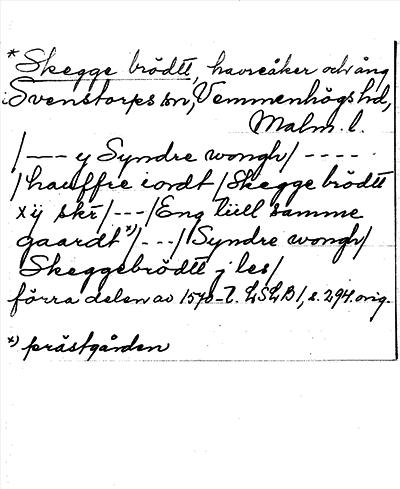 * Skegge brödtt, havreåker och äng
i Svenstorps sn, Vemmenhögs hd,
Malm. l.
/ --- y Syndre wongh / ----
/ hauffre iordt / Skegge brödtt
x ij skr̄ / --- / Eng till samme
gaardt *) / --- / Syndre wongh /
Skeggebrödtt j les /
förra delen av 1570-t. LSLB 1, s. 294. orig.
*) prästgården